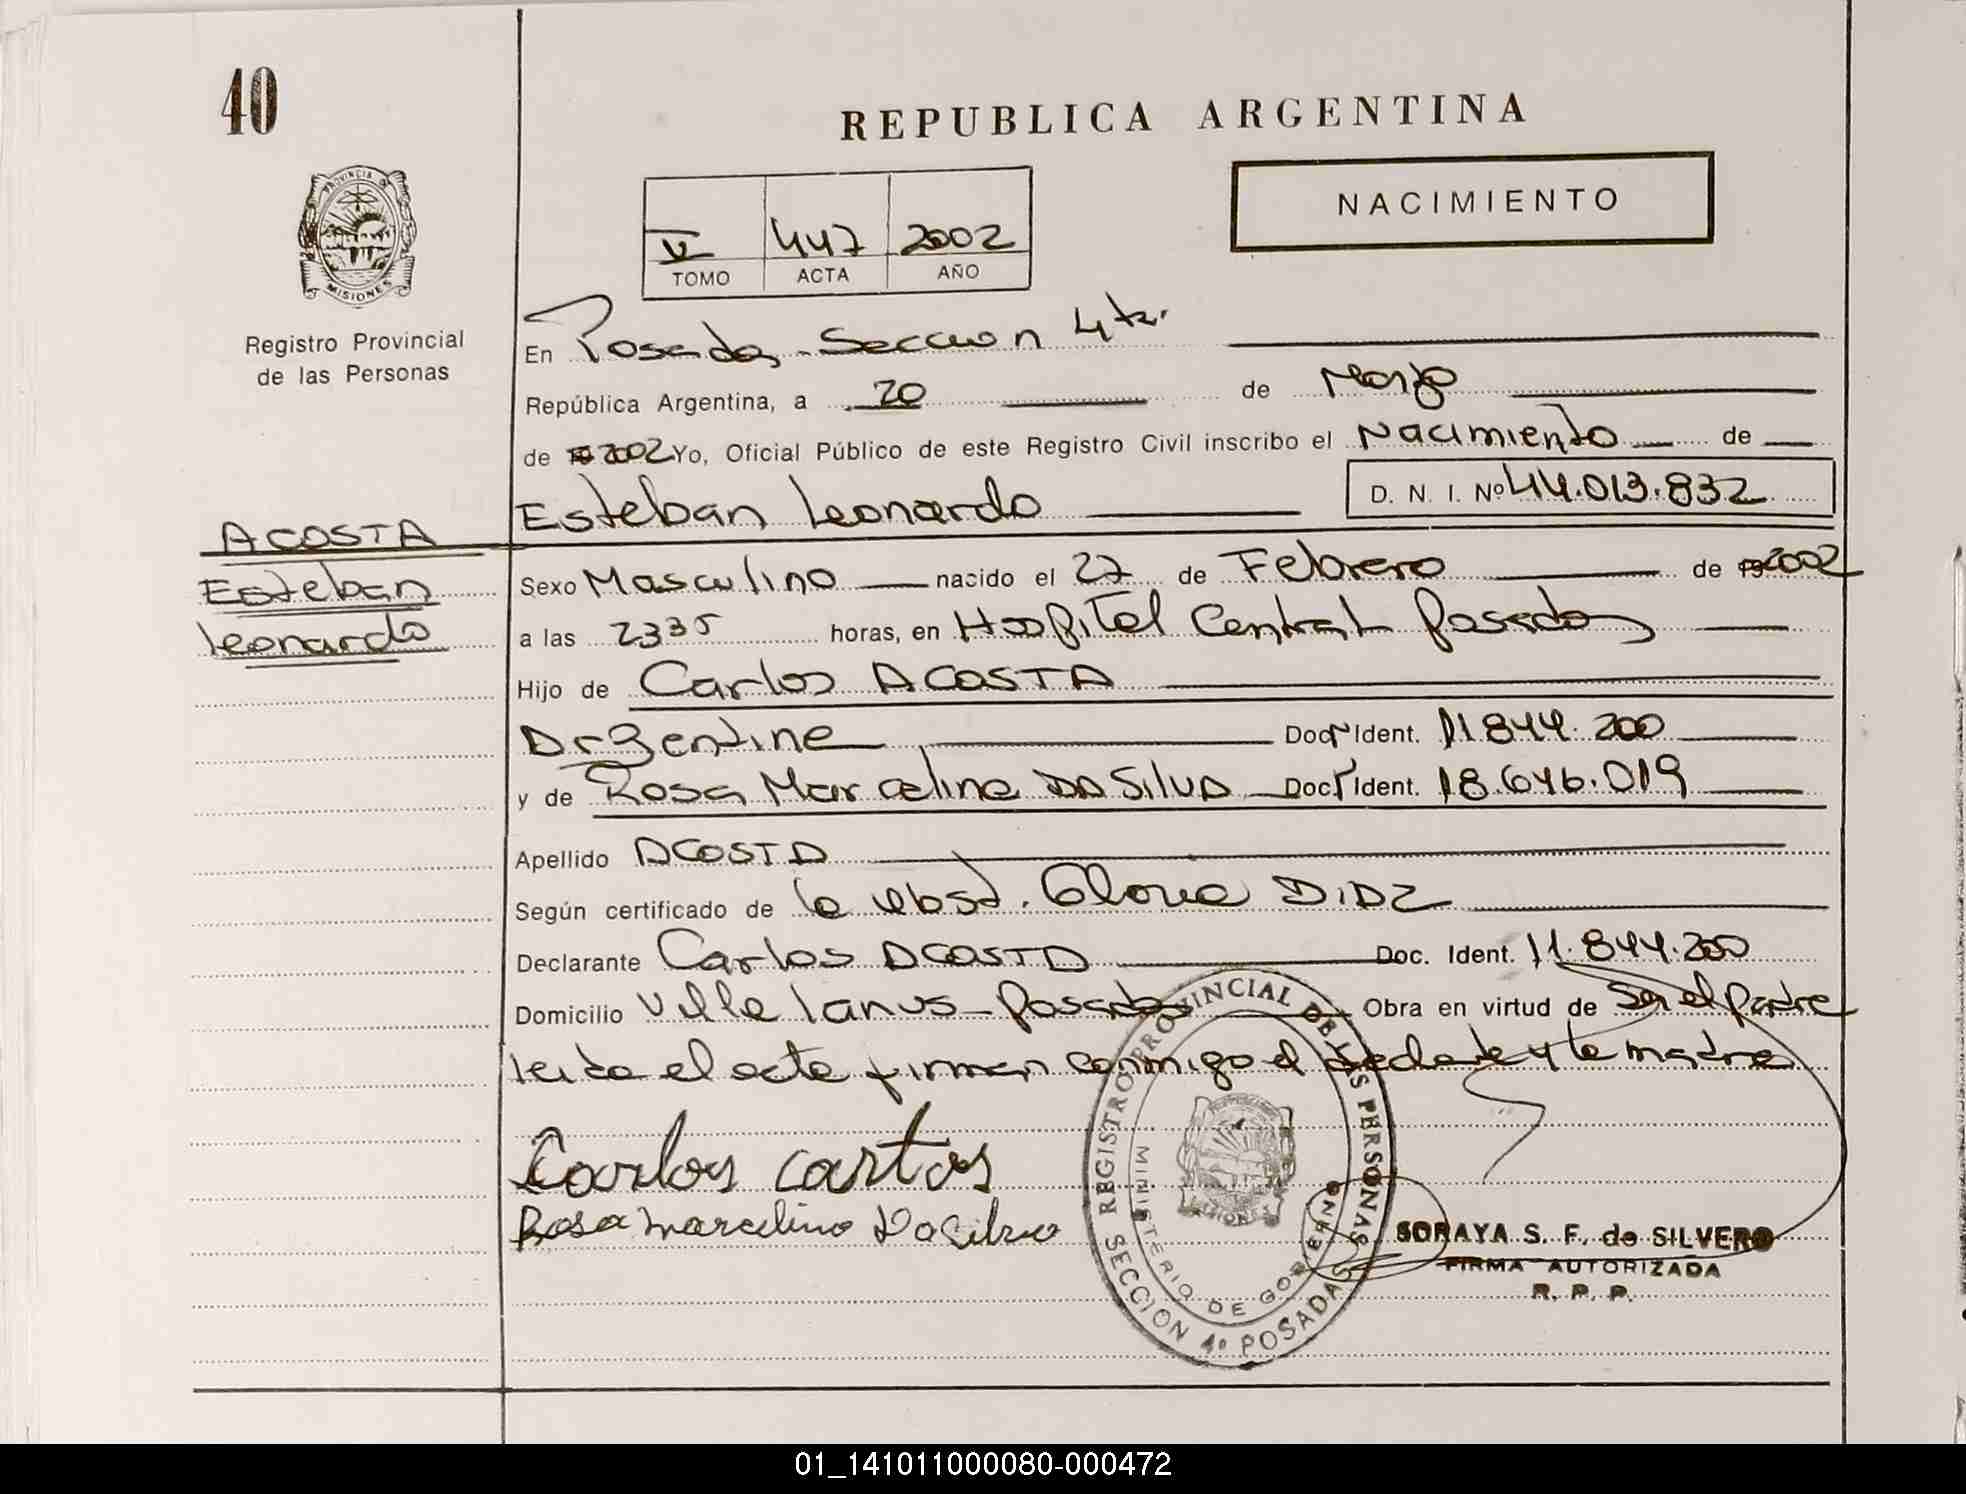 40
REPUBLICA ARGENTINA
NACIMIENTO
V 447 2002
TOMO ACTA AÑO
PROVINCIA DE MISIONES
Registro Provincial
de las Personas
En Posadas - Seccion 4ta.
República Argentina, a 20 de Marzo
de 2002 Yo, Oficial Público de este Registro Civil inscribo el Nacimiento de
Esteban Leonardo D. N. I. Nº 44.013.832
ACOSTA
Esteban
Leonardo
Sexo Masculino nacido el 27 de Febrero de 2002
a las 2335 horas, en Hospital Central Posadas
Hijo de Carlos ACOSTA
Argentina Doc. Ident. 11.844.200
y de Rosa Marcelina DA SILVA Doc. Ident. 18.646.019
Apellido ACOSTA
Según certificado de la obst. Gloria DIAZ
Declarante Carlos ACOSTA Doc. Ident. 11.844.200
Domicilio Villa Lanus - Posadas Obra en virtud de Ser el padre
leida el acta firman conmigo el y la madre
Carlos
Rosa Marcelino Da Silva
REGISTRO PROVINCIAL DE LAS PERSONAS
MINISTERIO DE GOBIERNO
SECCION 4º POSADAS
SORAYA S. F. de SILVERO
FIRMA AUTORIZADA
R. P. P.
01_141011000080-000472